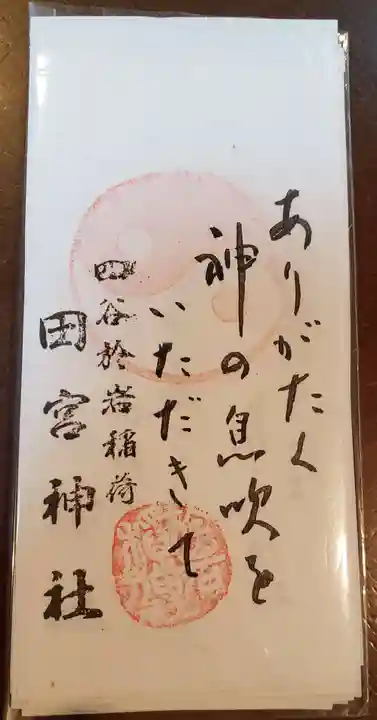 ありがたく
神の息吹を
いただきて
四谷於岩稲荷
田宮神社